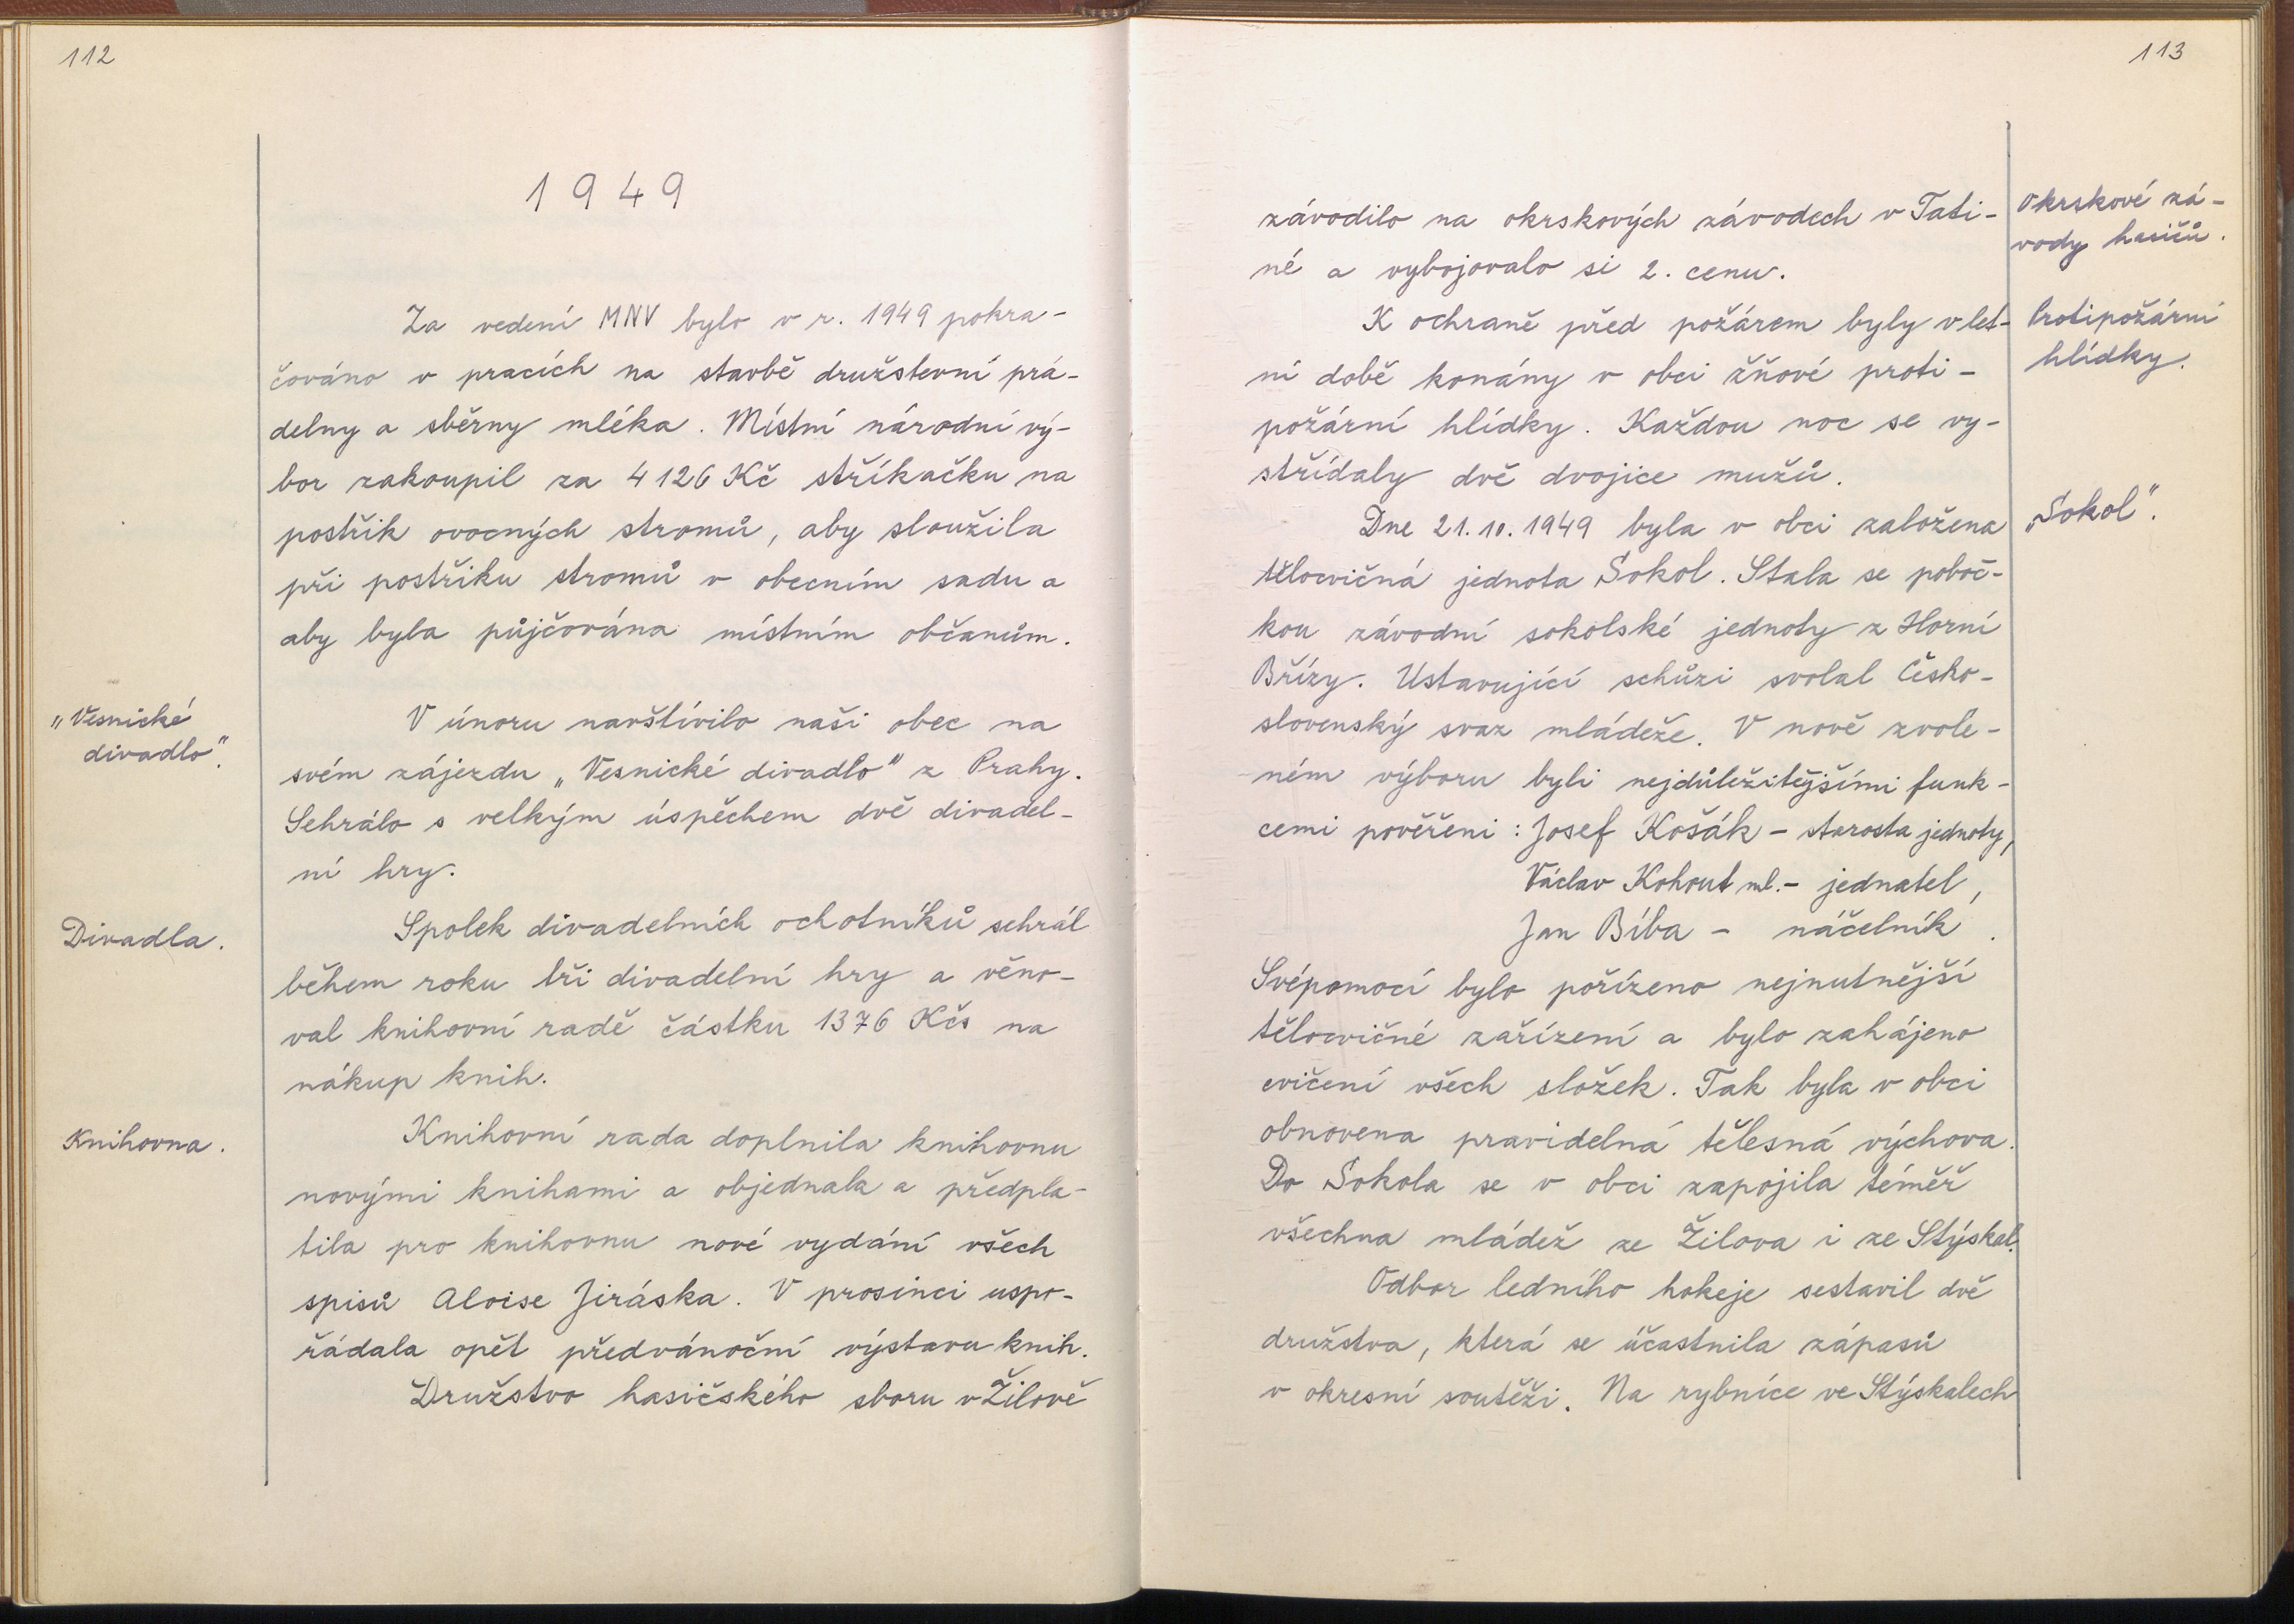 112
1949
Za vedení MNV bylo v r. 1949 pokra-
čováno v pracích na stavbě družstevní prá-
delny a sběrny mléka. Místní národní vý-
bor zakoupil za 4 126 Kč stříkačku na
postřik ovocných stromů, aby sloužila
při postřiku stromů v obecním sadu a
aby byla půjčována místním občanům.
„Vesnické
divadlo".
V únoru navštívilo naši obec na
svém zájezdu „Vesnické divadlo" z Prahy.
Sehrálo s velkým úspěchem dvě divadel-
ní hry.
Divadla.
Spolek divadelních ochotníků sehrál
během roku tři divadelní hry a věno-
val knihovní radě částku 1376 Kčs na
nákup knih.
Knihovna.
Knihovní rada doplnila knihovnu
novými knihami a objednala a předpla-
tila pro knihovnu nové vydání všech
spisů Aloise Jiráska. V prosinci uspo-
řádala opět předvánoční výstavu knih.
Družstvo hasičského sboru v Žilově
113
závodilo na okrskových závodech v Tati-
né a vybojovalo si 2. cenu.
Okrskové zá-
vody hasičů.
K ochraně před požárem byly v let-
ní době konány v obci žňové proti-
požární hlídky. Každou noc se vy-
střídaly dvě dvojice mužů.
Protipožární
hlídky.
Dne 21. 10. 1949 byla v obci založena
tělocvičná jednota Sokol. Stala se poboč-
kou závodní sokolské jednoty z Horní
Břízy. Ustavující schůzi svolal Česko-
slovenský svaz mládeže. V nově zvole-
ném výboru byli nejdůležitějšími funk-
cemi pověřeni: Josef Košák - starosta jednoty,
Václav Kohout ml. - jednatel,
Jan Bíba - náčelník.
Svépomocí bylo pořízeno nejnutnější
tělocvičné zařízení a bylo zahájeno
cvičení všech složek. Tak byla v obci
obnovena pravidelná tělesná výchova.
Do Sokola se v obci zapojila téměř
všechna mládež ze Žilova i ze Stýskal.
„Sokol".
Odbor ledního hokeje sestavil dvě
družstva, která se účastnila zápasů
v okresní soutěži. Na rybníce ve Stýskalech